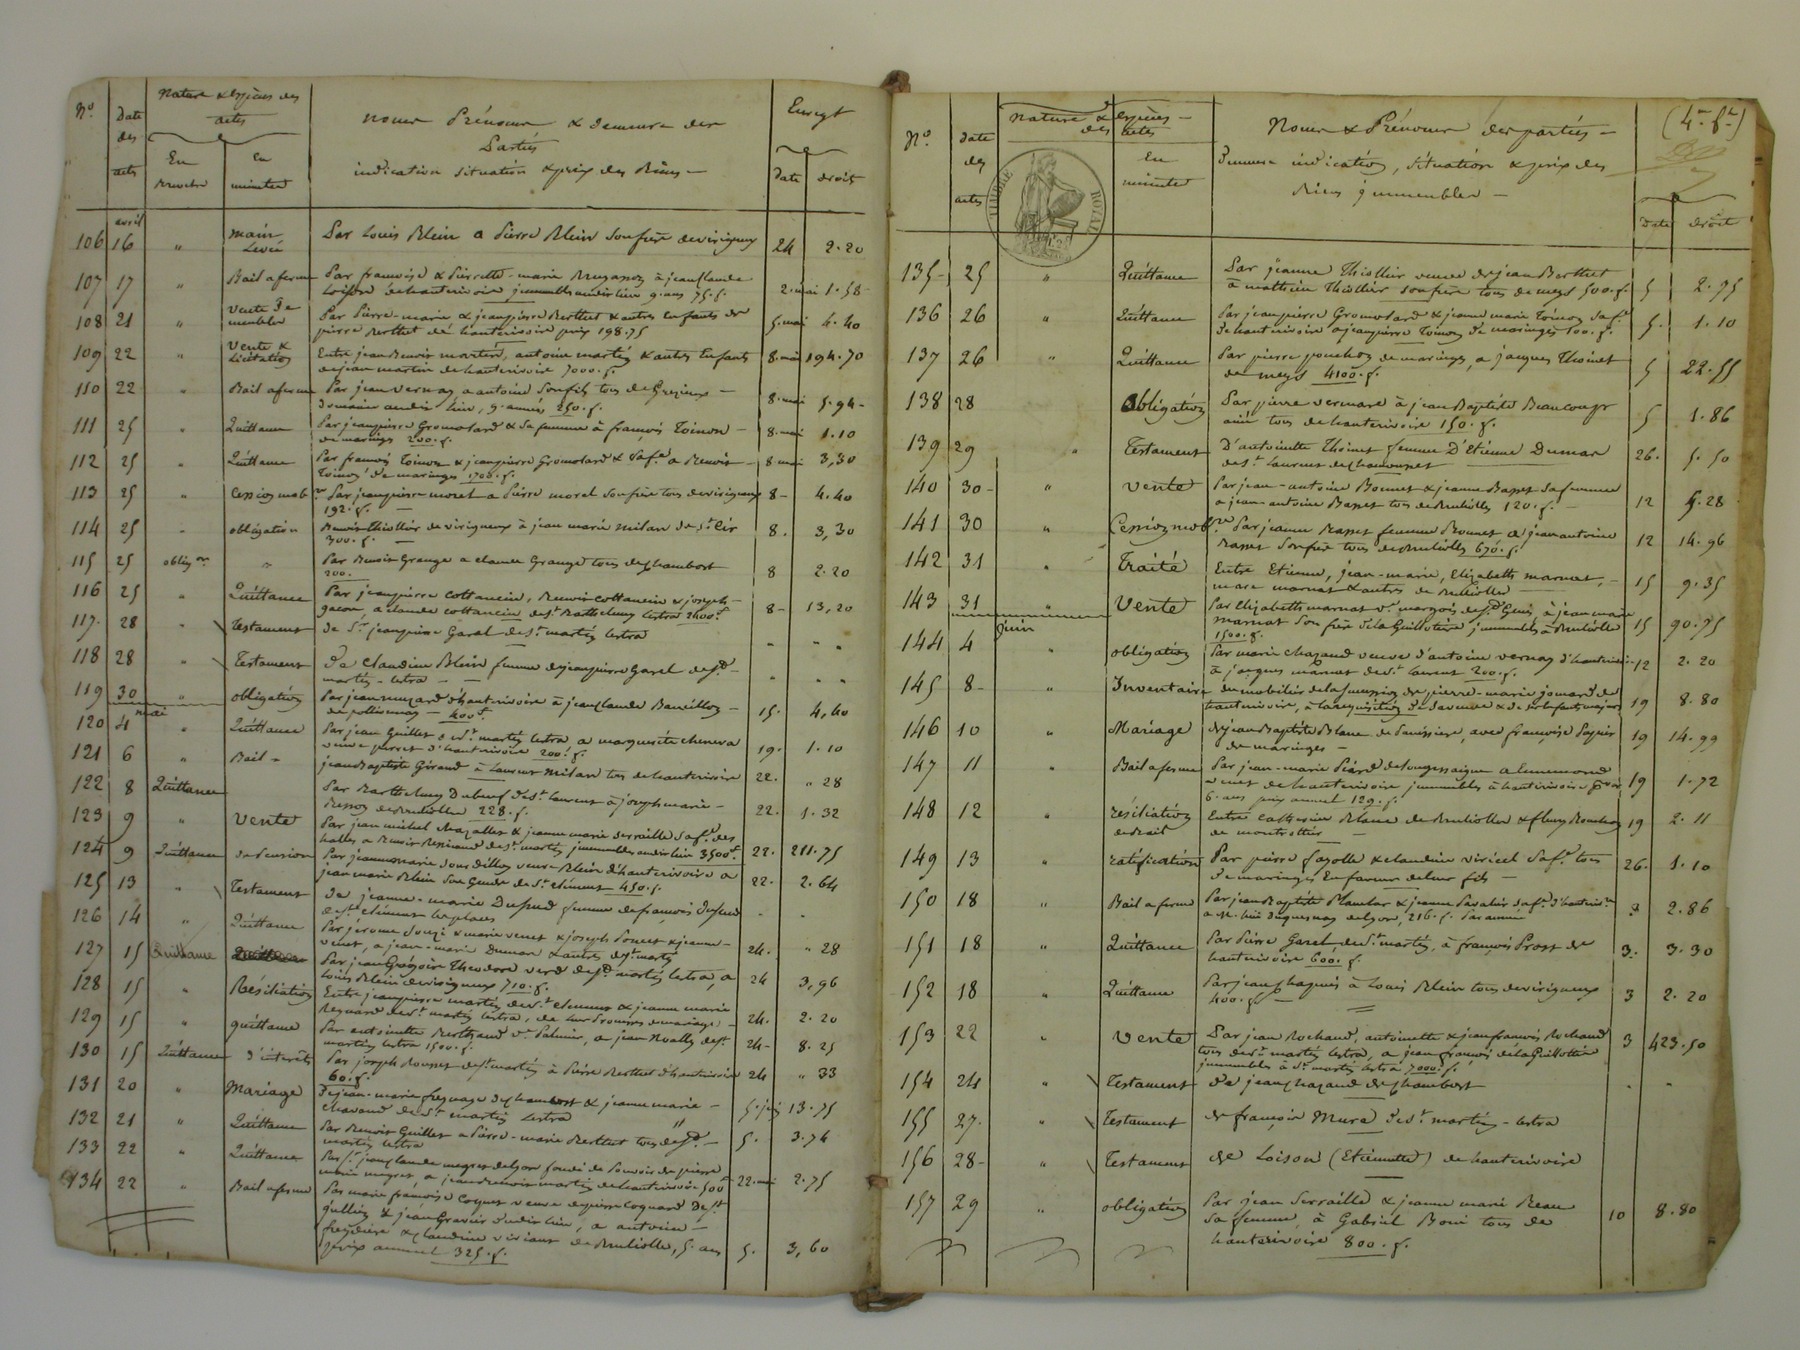 N.o Date des actes Nature & Espèces des actes En Brevets En minutes
Noms Prénoms & demeure des Parties
indication situation & prix des Biens —
Enregt Date droit
avril
106 16 " main levée Par Louis Blein a Pierre Blein son frère de virigneux 24 2.20
107 17 " Bail a ferme Par françoise & Pierrette-marie à jean claude
Loison de hauterivoire immeubles audit lieu 9 ans 75 f. 2 mai 1.58
108 21 " Vente de meubles Par Pierre-marie & jean pierre Berthet & autres enfants de
pierre Berthet de hauterivoire prix 198.75 5 mai 4.40
109 22 " Vente & licitation Entre jean Benoit martin, antoine martin & autres Enfants
de jean martin de hauterivoire 7000 f. 8 mai 194.70
110 22 " Bail a ferme Par jean Vernay a antoine son fils tous de Grezieux —
domaine audit lieu, 9 années 250 f. 8 mai 5.94
111 25 " Quittance Par jean pierre Gromolard & sa femme à françois Toinon —
de maringes 200 f. 8 mai 1.10
112 25 " Quittance Par françois Toinon & jean pierre Gromolard & sa f.e a Benoit
Toinon de maringes 1700 f. 8 mai 3,30
113 25 " Cession mob.re Par jean pierre morel a Pierre morel son frère tous de virigneux
192 f. — 8 4.40
114 25 " obligation Benoit Thiollier de virigneux à jean marie milan de St Cir
300 f. — 8. 3,30
115 25 oblig.on " Par Benoit Grange a claude Grange tous de chambost
200. 8 2.20
116 25 " Quittance Par jean pierre Cottancin, Benoit Cottancin & joseph
gacon, a claude cottancin de St Barthelemy lestra 2400 f 8 13,20
117 28 " Testament de Sr jean pierre Garel de St martin lestra " " "
118 28 " Testament De Claudine Blein femme de jean pierre Garel de St
martin-lestra — " " "
119 30 " obligation Par jean de hauterivoire à jean claude
de pollionnay — 400 f 15. 4,40
mai
120 4 " Quittance Par jean Guillet de St martin lestra a marguerite
veuve d'hauterivoire 200 f. 19. 1.10
121 6 " Bail — jean Baptiste Giraud à Laurent milan tous de hauterivoire 22. " 28
122 8 Quittance Par Barthelemy Duboeuf de St laurent à joseph marie —
de Brullioles 228 f. 22. 1.32
123 9 " Vente Par jean michel & jeanne marie serraille sa f.e des
halles a Benoit de St martin, immeubles audit lieu 3500 f. 22. 211.75
124 9 Quittance de Pension Par jeanne marie veuve Blein d'hauterivoire a
jean marie Blein son Gendre de St clément 450 f. 22. 2.64
125 13 " Testament de jeanne-marie Dufeud femme de françois Dufeud
de St clément les places " "
126 14 " Quittance Par jérome & marie venet & joseph Poncet & jeanne
venet, a jean-marie Dumas & autres de St martin 24. " 28
127 15 Quittance Par jean Grégoire Theodore verd de St martin lestra, a
Louis Blein de virigneux 710 f. 24 3,96
128 15 " Résiliation Entre jean pierre martin de St clément & jeanne marie
de St martin lestra, de leur Promesse de mariage — 24. 2.20
129 15 " quittance Par antoinette Berthaud v.e Palmier, a jean Noally de St
martin lestra 1500 f. 24 8.25
130 15 Quittance d'interets Par joseph de St martin à Pierre Berthet d'hauterivoire
60 f. 24 " 33
131 20 " Mariage De jean-marie de chambost & jeanne marie —
Chavand de St martin lestra 5. juin 13.75
132 21 " Quittance Par Benoit Guillet a Pierre-marie Berthet tous de St
martin lestra 5. 3.74
133 22 " Quittance Par Sr jean claude de Lyon fondé de Pouvoir de pierre
marie, a jean Benoit martin de hauterivoire 500 f 22. mai 2.75
134 22 " Bail a ferme Par marie françoise Coquet veuve de pierre Coquard de St
& jean Gravier dudit lieu, a antoine
& claudine de Brulliole, 5 ans
prix annuel 325 f. 5. 3,60
N.o date des actes nature & espèces des actes En minutes
TIMBRE ROYAL
Noms & Prénoms des parties —
Demeure indication, situation & prix des
Biens immeubles —
(4e ft)
date droit
135 25 " Quittance Par jeanne Thiollier veuve de jean Berthet
à mathieu Thiollier son frère tous de meys 500 f. 5 2.75
136 26 " Quittance Par jean pierre Gromolard & jeanne marie Toinon sa f.e
de hauterivoire a jean pierre Toinon de maringes 100 f. 5. 1.10
137 26 " Quittance Par pierre ponchon de maringes, a jacques Thoinet
de meys 4100 f. 5 22.55
138 28 obligation Par pierre vermare à jean Baptiste Beaucoup
ainé tous de hauterivoire 150 f. 5 1.86
139 29 " Testament D'antoinette Thoinet femme D'Etienne Dumas
de St laurent de chamousset 26. 5.50
140 30 " vente Par jean-antoine Bonnet & jeanne Basset sa femme
a jean-antoine Basset tous de Brullioles 120 f. — 12 5.28
141 30 Cession mob.re Par jeanne Basset femme Bonnet a jean antoine
Basset son frère tous de Brullioles 670 f. 12 14.96
142 31 " Traité Entre Etienne, jean-marie, Elizabeth marnat, —
marc marnat & autres de Brullioles — 15 9.35
143 31 " Vente Par Elizabeth marnat v.e margois de St Genis à jean marie
marnat son frère de la Guillotière immeubles à Brulliole
1500 f. 15 90.75
juin
144 4 " obligation Par marie chazaud veuve d'antoine vernay d'hauterivoire
à jacques marnat de St laurent 200 f. 12 2.20
145 8 " Inventaire du mobilier de la succession de pierre-marie jomard de
hauterivoire, à la requisition de sa veuve & de ses enfants majeurs 19 8.80
146 10 " Mariage de jean Baptiste Blanc de, avec françoise Papier
de maringes — 19 14.99
147 11 " Bail a ferme Par jean-marie Piard de longessaigne a ennemond
venet de hauterivoire, immeubles à hauterivoire pour
6 ans prix annuel 129 f. 19 1.72
148 12 " résiliation de Bail Entre Catherine Blanc de Brulliolles & fleury
de montrottier — 19 2.11
149 13 " ratification Par pierre fayolle & claudine viricel sa f.e tous
de maringes En faveur de leur fils — 26. 1.10
150 18 " Bail a ferme Par jean Baptiste Planchar & jeanne sa f.e d'hauterivoire
a M. de Lyon, 216 f. Par année 3 2.86
151 18 " Quittance Par Pierre Garel, de St martin, à françois Prost de
hauterivoire 600 f. 3. 3.30
152 18 " Quittance Par jean à Louis Blein tous de virigneux
400 f. — 3 2.20
153 22 " Vente Par jean Rochand, antoinette & jean françois Rochand
tous de St martin lestra, a jean françois de la Guillotière
immeubles à St martin lestra 7000 f. 3 423.50
154 24 " Testament de jean chazaud de chambost " "
155 27 " Testament de françois Mure de St martin-lestra
156 28 " Testament de Loison (Etiennette) de hauterivoire
157 29 " obligation Par jean Serraille & jeanne marie
sa femme, à Gabriel tous de
hauterivoire 800 f. 10 8.80